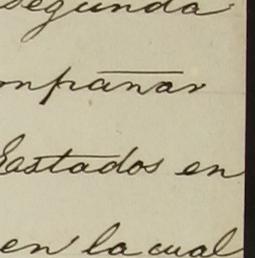 segunda
ompañar
Eastados en
en la cual